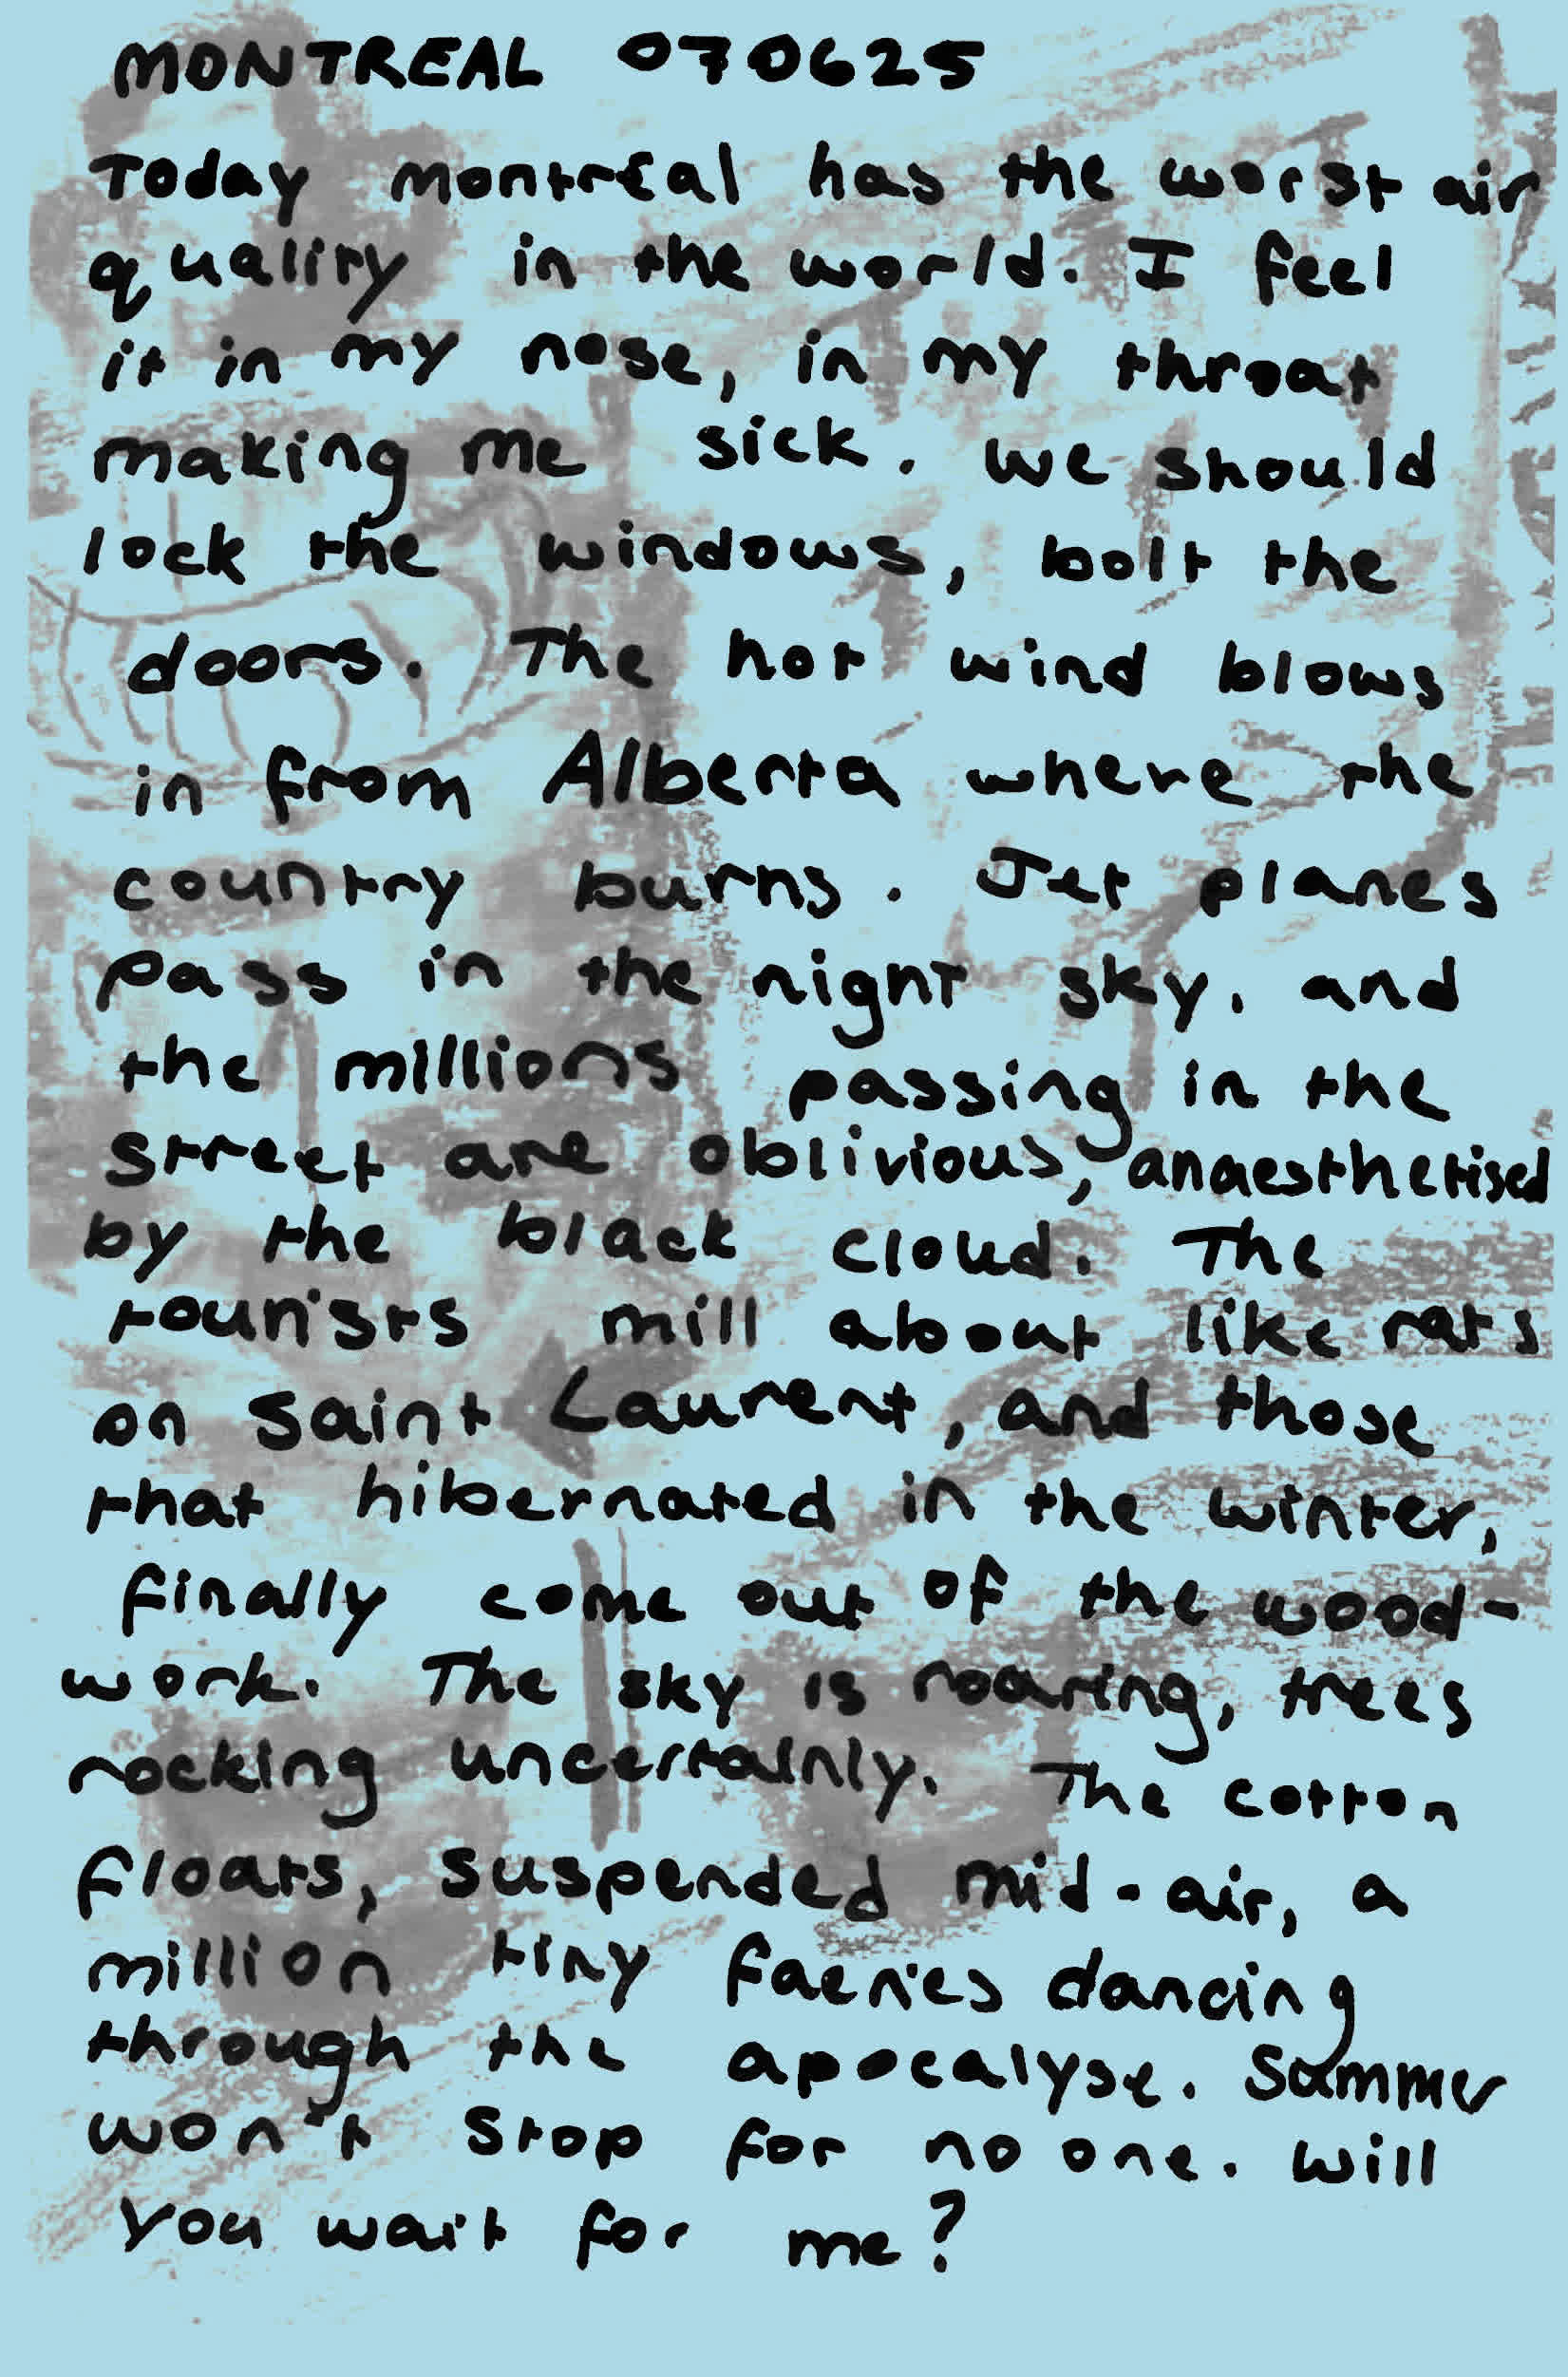 MONTREAL 070625
Today montreal has the worst air
quality in the world. I feel
it in my nose, in my throat
making me sick. we should
lock the windows, bolt the
doors. The hot wind blows
in from Alberta where the
country burns. Jet planes
pass in the night sky, and
the millions passing in the
street are oblivious, anaesthetised
by the black cloud. The
tourists mill about like rats
on saint Laurent, and those
that hibernated in the winter,
finally come out of the wood-
work. The sky is roaring, trees
rocking uncertainly. The cotton
floats, suspended mid-air, a
million tiny faeries dancing
through the apocalyse. Summer
won't stop for no one. will
you wait for me?